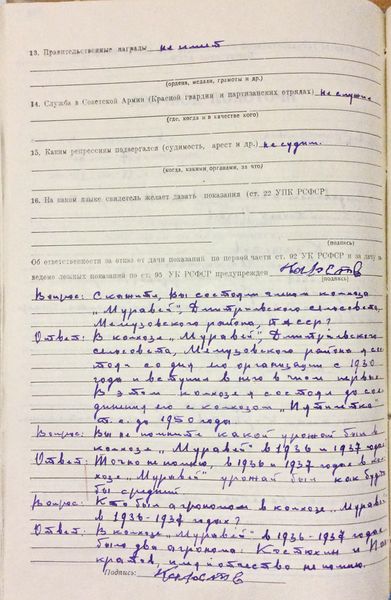 13. Правительственные награды не имеет
(ордена, медали, грамоты и др.)
14. Служба в Советской Армии (Красной гвардии и партизанских отрядах) не служил
(где, когда и в качестве кого)
15. Каким репрессиям подвергался (судимость, арест и др.) не судим.
(когда, какими органами, за что)
16. На каком языке свидетель желает давать показания (ст. 22 УПК РСФСР)
(подпись)
Об ответственности за отказ от дачи показаний по первой части ст. 92 УК РСФСР и за дачу за-
ведомо ложных показаний по ст. 95 УК РСФСР предупрежден
(подпись)
Вопрос: Скажите, Вы состояли членом колхоза
„Муравей", Дмитриевского сельсовета,
Мелеузовского района, БАССР?
Ответ: В колхозе „Муравей", Дмитриевского
сельсовета, Мелеузовского района я сос-
тоял со дня его организации с 1930
года и вступил в него в числе первых.
В этом колхозе я состоял до сое-
динения его с колхозом „Пятилетка"
т.е. до 1950 года.
Вопрос: Вы не помните какой урожай был в
колхозе „Муравей" в 1936 и 1937 годах
Ответ: Точно не помню, в 1936 и 1937 годах в кол-
хозе „Муравей" урожай был как будто
бы средний.
Вопрос: Кто был агрономом в колхозе „Муравей"
в 1936-1937 годах?
Ответ: В колхозе „Муравей" в 1936-1937 годах
было два агронома: Костюхин и Пан-
кратов, имя отчество не помню.
Подпись: